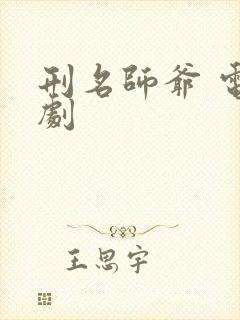 刑名師爺 電
劇
王思宇